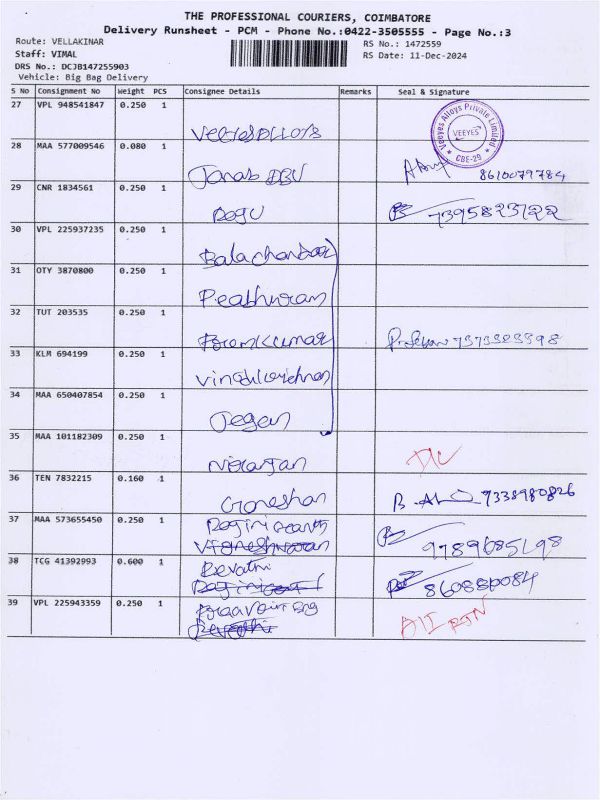 THE PROFESSIONAL COURIERS, COIMBATORE
Delivery Runsheet - PCM - Phone No.:0422-3505555 - Page No.:3
Route: VELLAKINAR
RS No.: 1472559
Staff: VIMAL
RS Date: 11-Dec-2024
DRS No.: DCJB147255903
Vehicle: Big Bag Delivery
S No Consignment No Weight PCS Consignee Details Remarks Seal & Signature
27 VPL 948541847 0.250 1
Veeyes Alloys Private Limited
VEEYES
CBE-29
28 MAA 577009546 0.080 1
8610079784
29 CNR 1834561 0.250 1
7395823722
30 VPL 225937235 0.250 1
Balachandar
31 OTY 3870800 0.250 1
32 TUT 203535 0.250 1
33 KLM 694199 0.250 1
34 MAA 650407854 0.250 1
Jegan
35 MAA 101182309 0.250 1
Niranjan
36 TEN 7832215 0.160 1
Ganeshan
9338980826
37 MAA 573655450 0.250 1
38 TCG 41392993 0.600 1
Revathi
39 VPL 225943359 0.250 1
RTN